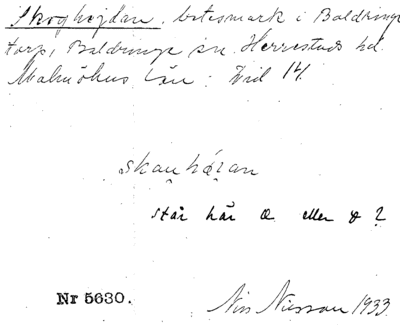 Skoghejdan, betesmark i Baldringe
torp, Baldringe sn. Herrestads hd.
Malmöhus län.
skau̯hǫ́ʅan
står här a eller ɐ ?
Nr 5630.
Nils Nilsson 1933.